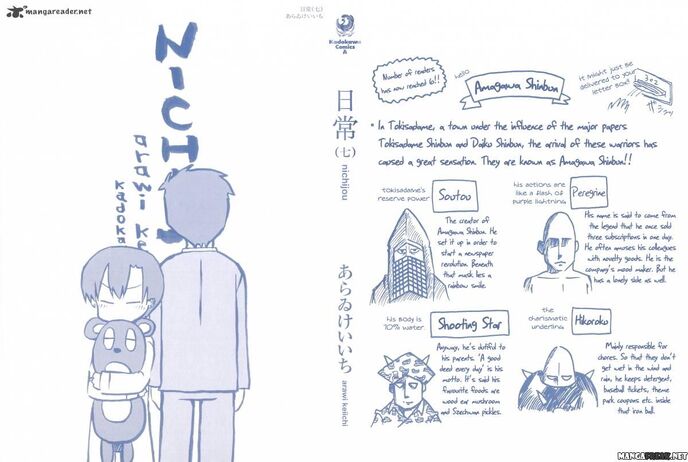 mangareader.net
NICHI
arawi ke
kadoka
日常(七)
あらゐけいいち
Kadokawa
Comics
A
日常(七)
nichijou
あらゐけいいち
arawi keiichi
Number of readers
has now reached 6!!
hello
Amagawa Shinbun
It might just be
delivered to your
letter box!
303
• In Tokisadame, a town under the influence of the major papers
Tokisadame Shinbun and Daiku Shinbun, the arrival of these warriors has
caused a great sensation. They are known as Amagawa Shinbun!!
tokisadame's
reserve power
Soutou
The creator of
Amagawa Shinbun. He
set it up in order to
start a newspaper
revolution. Beneath
that mask lies a
rainbow smile.
his actions are
like a flash of
purple lightning.
Peregrine
His name is said to come from
the legend that he once sold
three subscriptions in one day.
He often amuses his colleagues
with novelty goods. He is the
company's mood maker. But he
has a lonely side as well.
his body is
70% water.
Shooting Star
Anyway, he's dutiful to
his parents. 'A good
deed every day' is his
motto. It's said his
favourite foods are
wood ear mushroom
and Szechwan pickles.
the
charismatic
underling.
Hikoroku
Mainly responsible for
chores. So that they don't
get wet in the wind and
rain, he keeps detergent,
baseball tickets, theme
park coupons etc. inside
that iron ball.